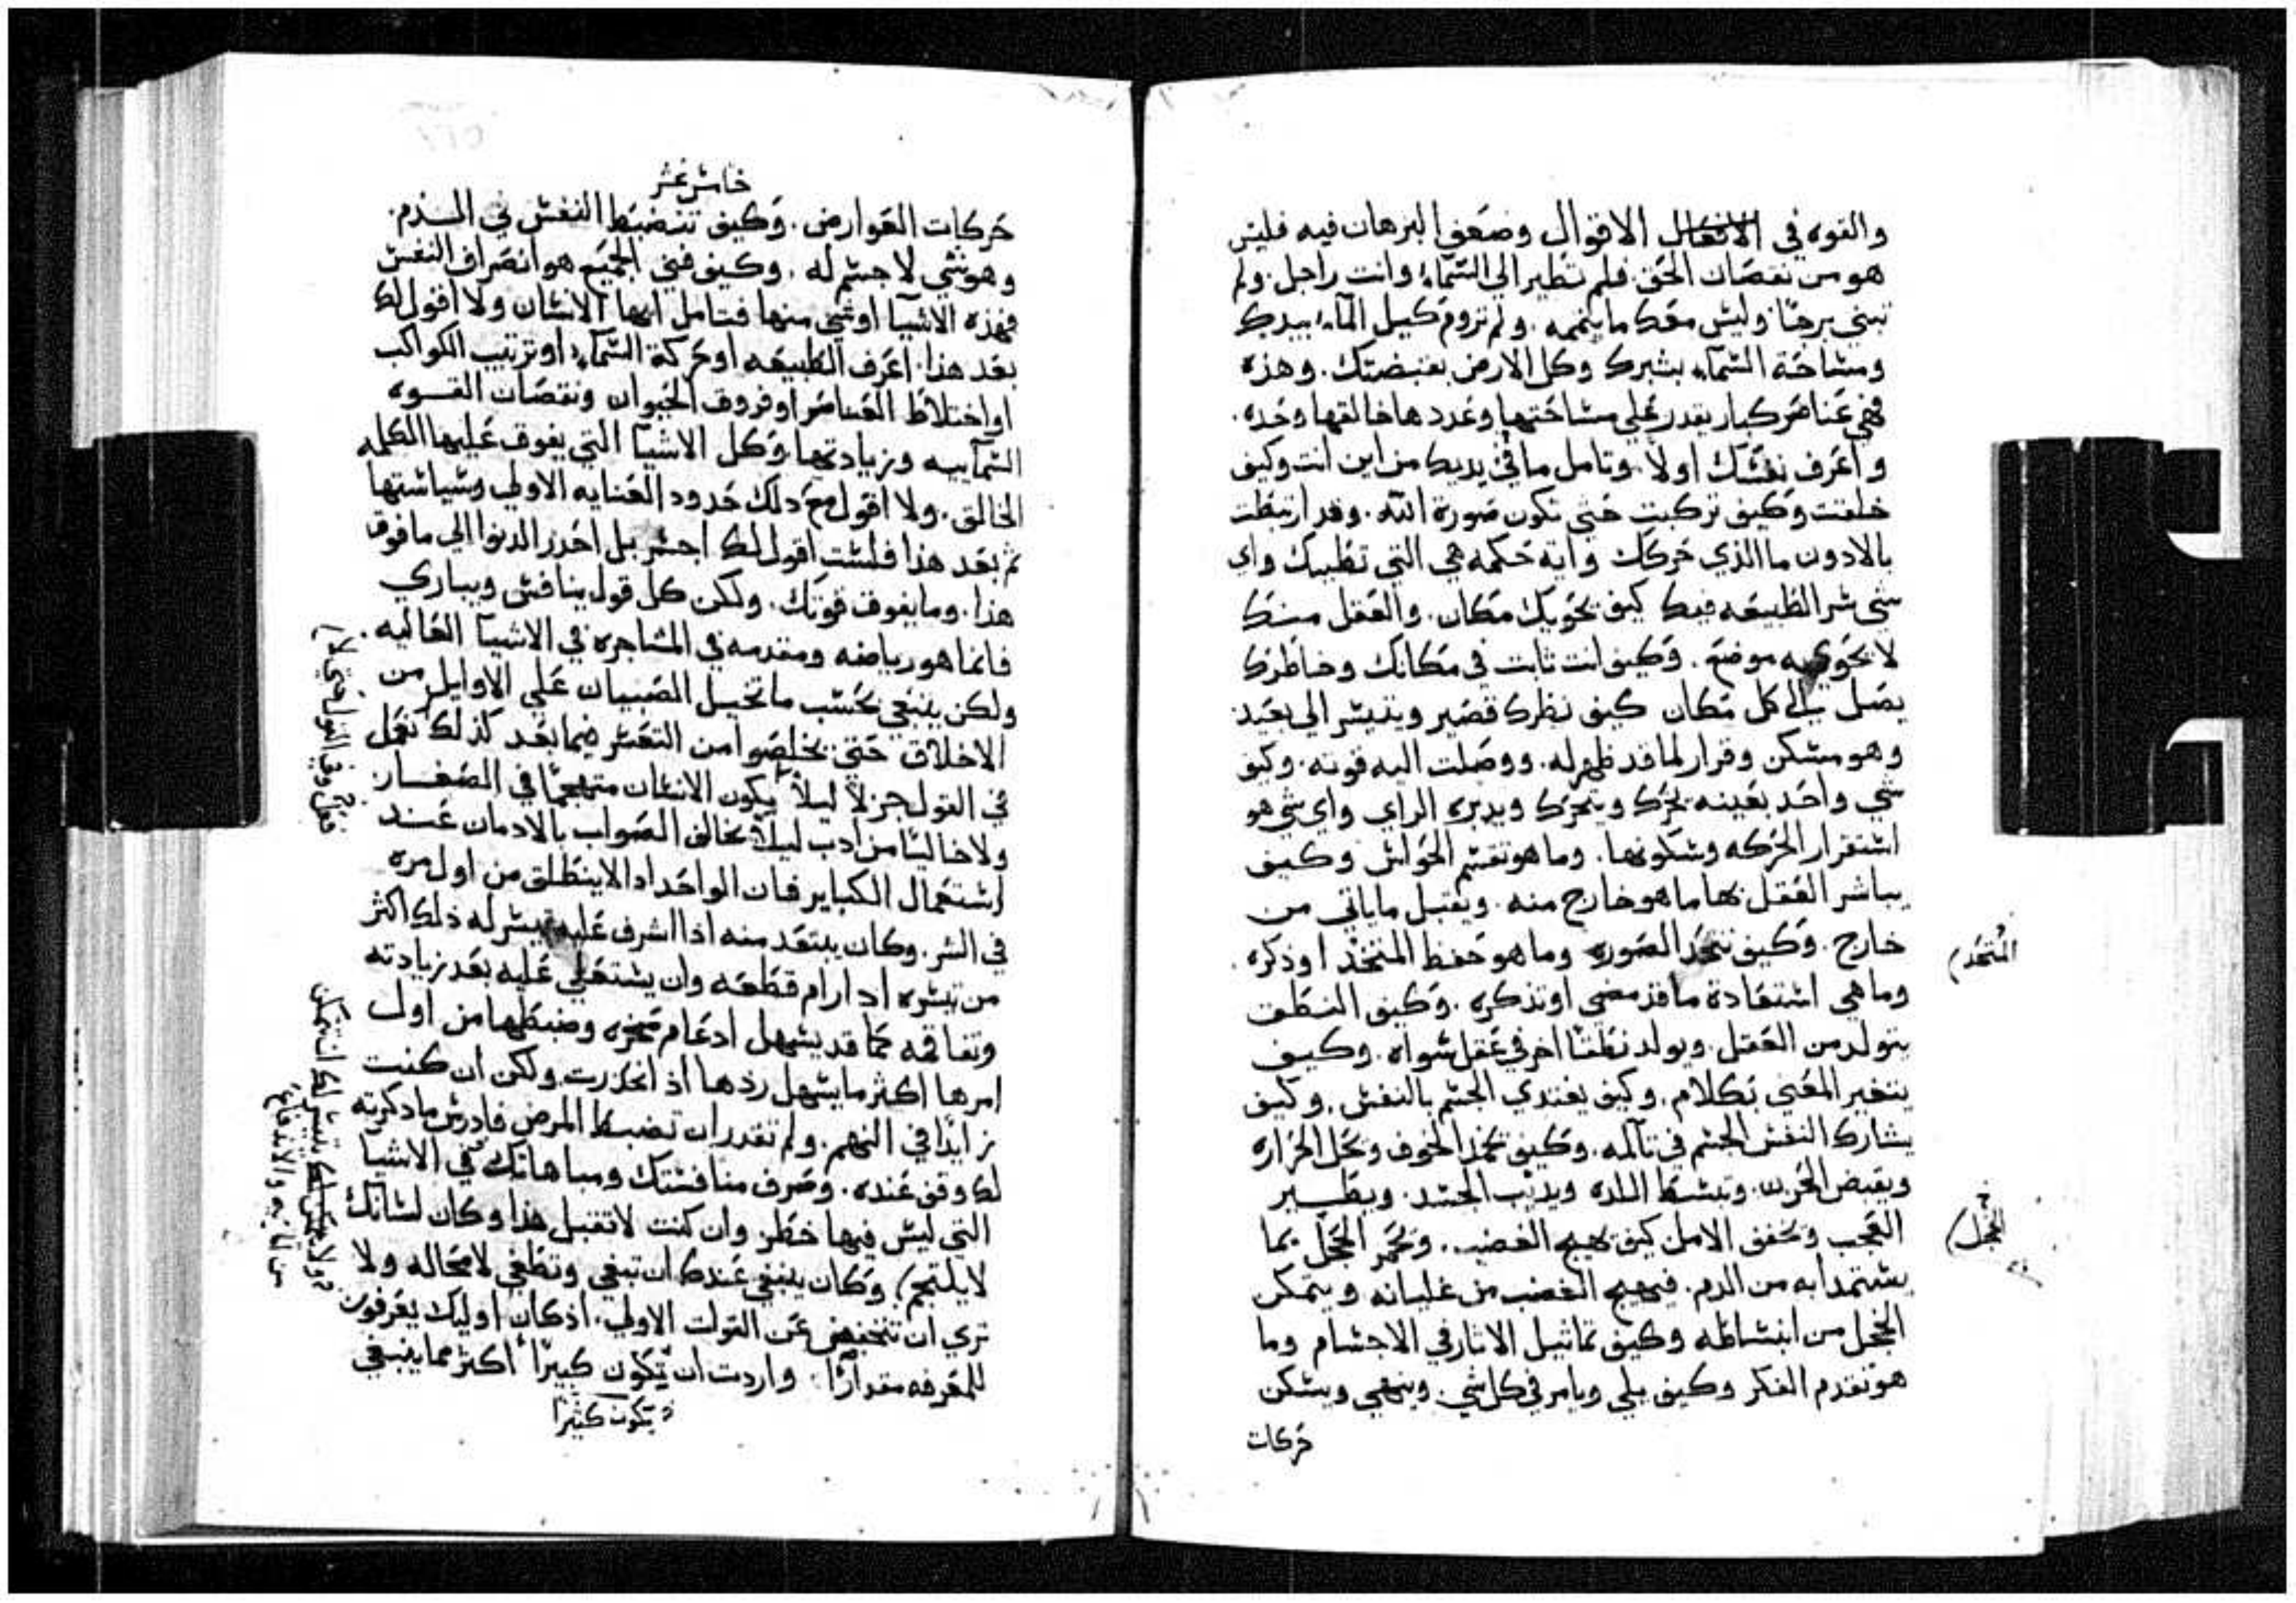 والقوه في الانتقال الاقوال وضعف البرهان فيه فليس
هو من نقصان الحق. فلم تطير الي السماء وانت راجل. ولم
تبني برجًا وليس معك ما يتممه. ولم تروم كيل الماء بيدك
ومساحة السماء بشبرك وكل الارض بقبضتك. وهذه
فهي عناصر كبار يقدر علي مساحتها وعددها خالقها وحده.
واعرف نفسك اولاً. وتامل ما في يديك من اين انت وكيف
خلقت وكيف تركبت حتي تكون صورة الله. وقد ارتبطت
بالادون ما الذي حركك واية حكمه هي التي تطبيك واي
شي سر الطبيعه فيك كيف يحويك مكان. والعقل منك
لا يحويه موضع. وكيف انت ثابت في مكانك وخاطرك
يصل الي كل مكان كيف نظرك قصير وينيسر الي بعيد
وهو مسكن وقرار لما قد ظهر له. ووصلت اليه قوته. وكيف
شي واحد بعينه يحرك ويتحرك ويدبره الراي واي شي هو
استقرار الحركه وسكونها. وما هو تقسم الحواس وكيف
يباشر العقل بها ما هو خارج منه. ويقبل ما ياتي من
خارج. وكيف تتخذ الصوره وما هو حفظ المتخذ او ذكره.
المتحد
وما هي استعادة ما قد مضي او تذكره. وكيف النطق
يتولد من العقل. ويولد نطقًا اخر في عقل سواه. وكيف
يتخبر المعني بكلام. وكيف يغتدي الجسم بالنفس. وكيف
يشارك النفس الجسم في تآلمه. وكيف يجمد الخوف وتحل الحراره
ويقبض الحزن. وتبسط اللده ويديب الحسد. ويطير
العجب ويخفف الامل كيف يهيج الغضب. ويحمر الخجل بما
الخجل
يستمدا به من الدم. فيهيج الغضب من غليانه ويتمكن
الخجل من انبساطه وكيف تماثيل الاثار في الاجسام وما
هو تقدم الفكر وكيف يلي ويامر في كل شي. وينهي ويسكن
حركات
خامس عشر
حركات العوارض. وكيف تنضبط النفس في الدم.
وهو شي لا جسم له. وكيف فني الجميع هو انصراف النفس
فهذه الاشيآ او شي منها فتامل ايها الانسان ولا اقول لك
بعد هذا. اعرف الطبيعه او حركة السماء. او ترتيب الكواكب
او اختلاط العناصر او فروق الحيوان ونقصان القوه
السمآييه وزيادتها وكل الاشيآ التي يفوق عليها الكلمه
الخالق. ولا اقول مع دلك حدود العنايه الاولي وسياستها
ثم بعد هذا فلست اقول لك اجسر بل احدر الدنوا الي ما فوق
هذا. وما يفوق قوتك. ولكن كل قول ينافس ويباري
فانما هو رياضه ومقدمه في المشاجره في الاشيآ العاليه.
ولكن ينبغي بحسب ما تخيل الصبيان علي الاوايل من
الاخلاق حتي يخلصوا من التعسر فيما بعد كذلك نعمل
في القول جزلاً ليلاً يكون الانسان متهجمًا في الصغار
ولا خاليًا من ادب ليلاً يخالف الصواب بالادمان عند
استعمال الكباير فان الواحد ادا لا ينطلق من اول مره
في الشر. وكان يبتعد منه اذا اشرف عليه تيسر له ذلك اكثر
من تيسره ادا رام قطعه وان يستعلي عليه بعد زيادته
وتفاقمه كما قد يسهل ادغام صخره وضبطها من اول
امرها اكثر ما يسهل ردها اذ انحدرت ولكن ان كنت
زايدًا في النهم. ولم تقدر ان تضبط المرض فادرس ما دكرته
لك وقف عنده. وصرف منافستك ومباهاتك في الاشيا
التي ليس فيها خطر وان كنت لا تقبل هذا وكان لسانك
لا يلتجم وكان ينبغي عندك ان تبغي وتطغي لا محاله ولا
تري ان تنخفض عن القوات الاولي. اذ كان اوليك يعرفون
للمعرفه مقدارًا. واردت ان تكون كبيرًا اكثر مما ينبغي
يكون كثيرًا